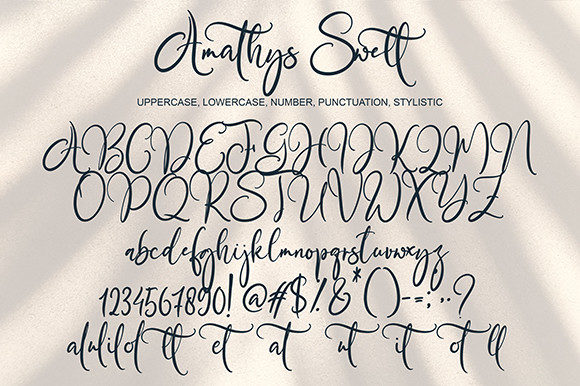 Amathys Swett
UPPERCASE, LOWERCASE, NUMBER, PUNCTUATION, STYLISTIC
ABCDEFGHIJKLMN
OPQRSTUVWXYZ
abcdefghijklmnopqrstuvwxyz
1234567890! @#$%&*()-=:;,.?
alulilol tt et at ut it ot ll